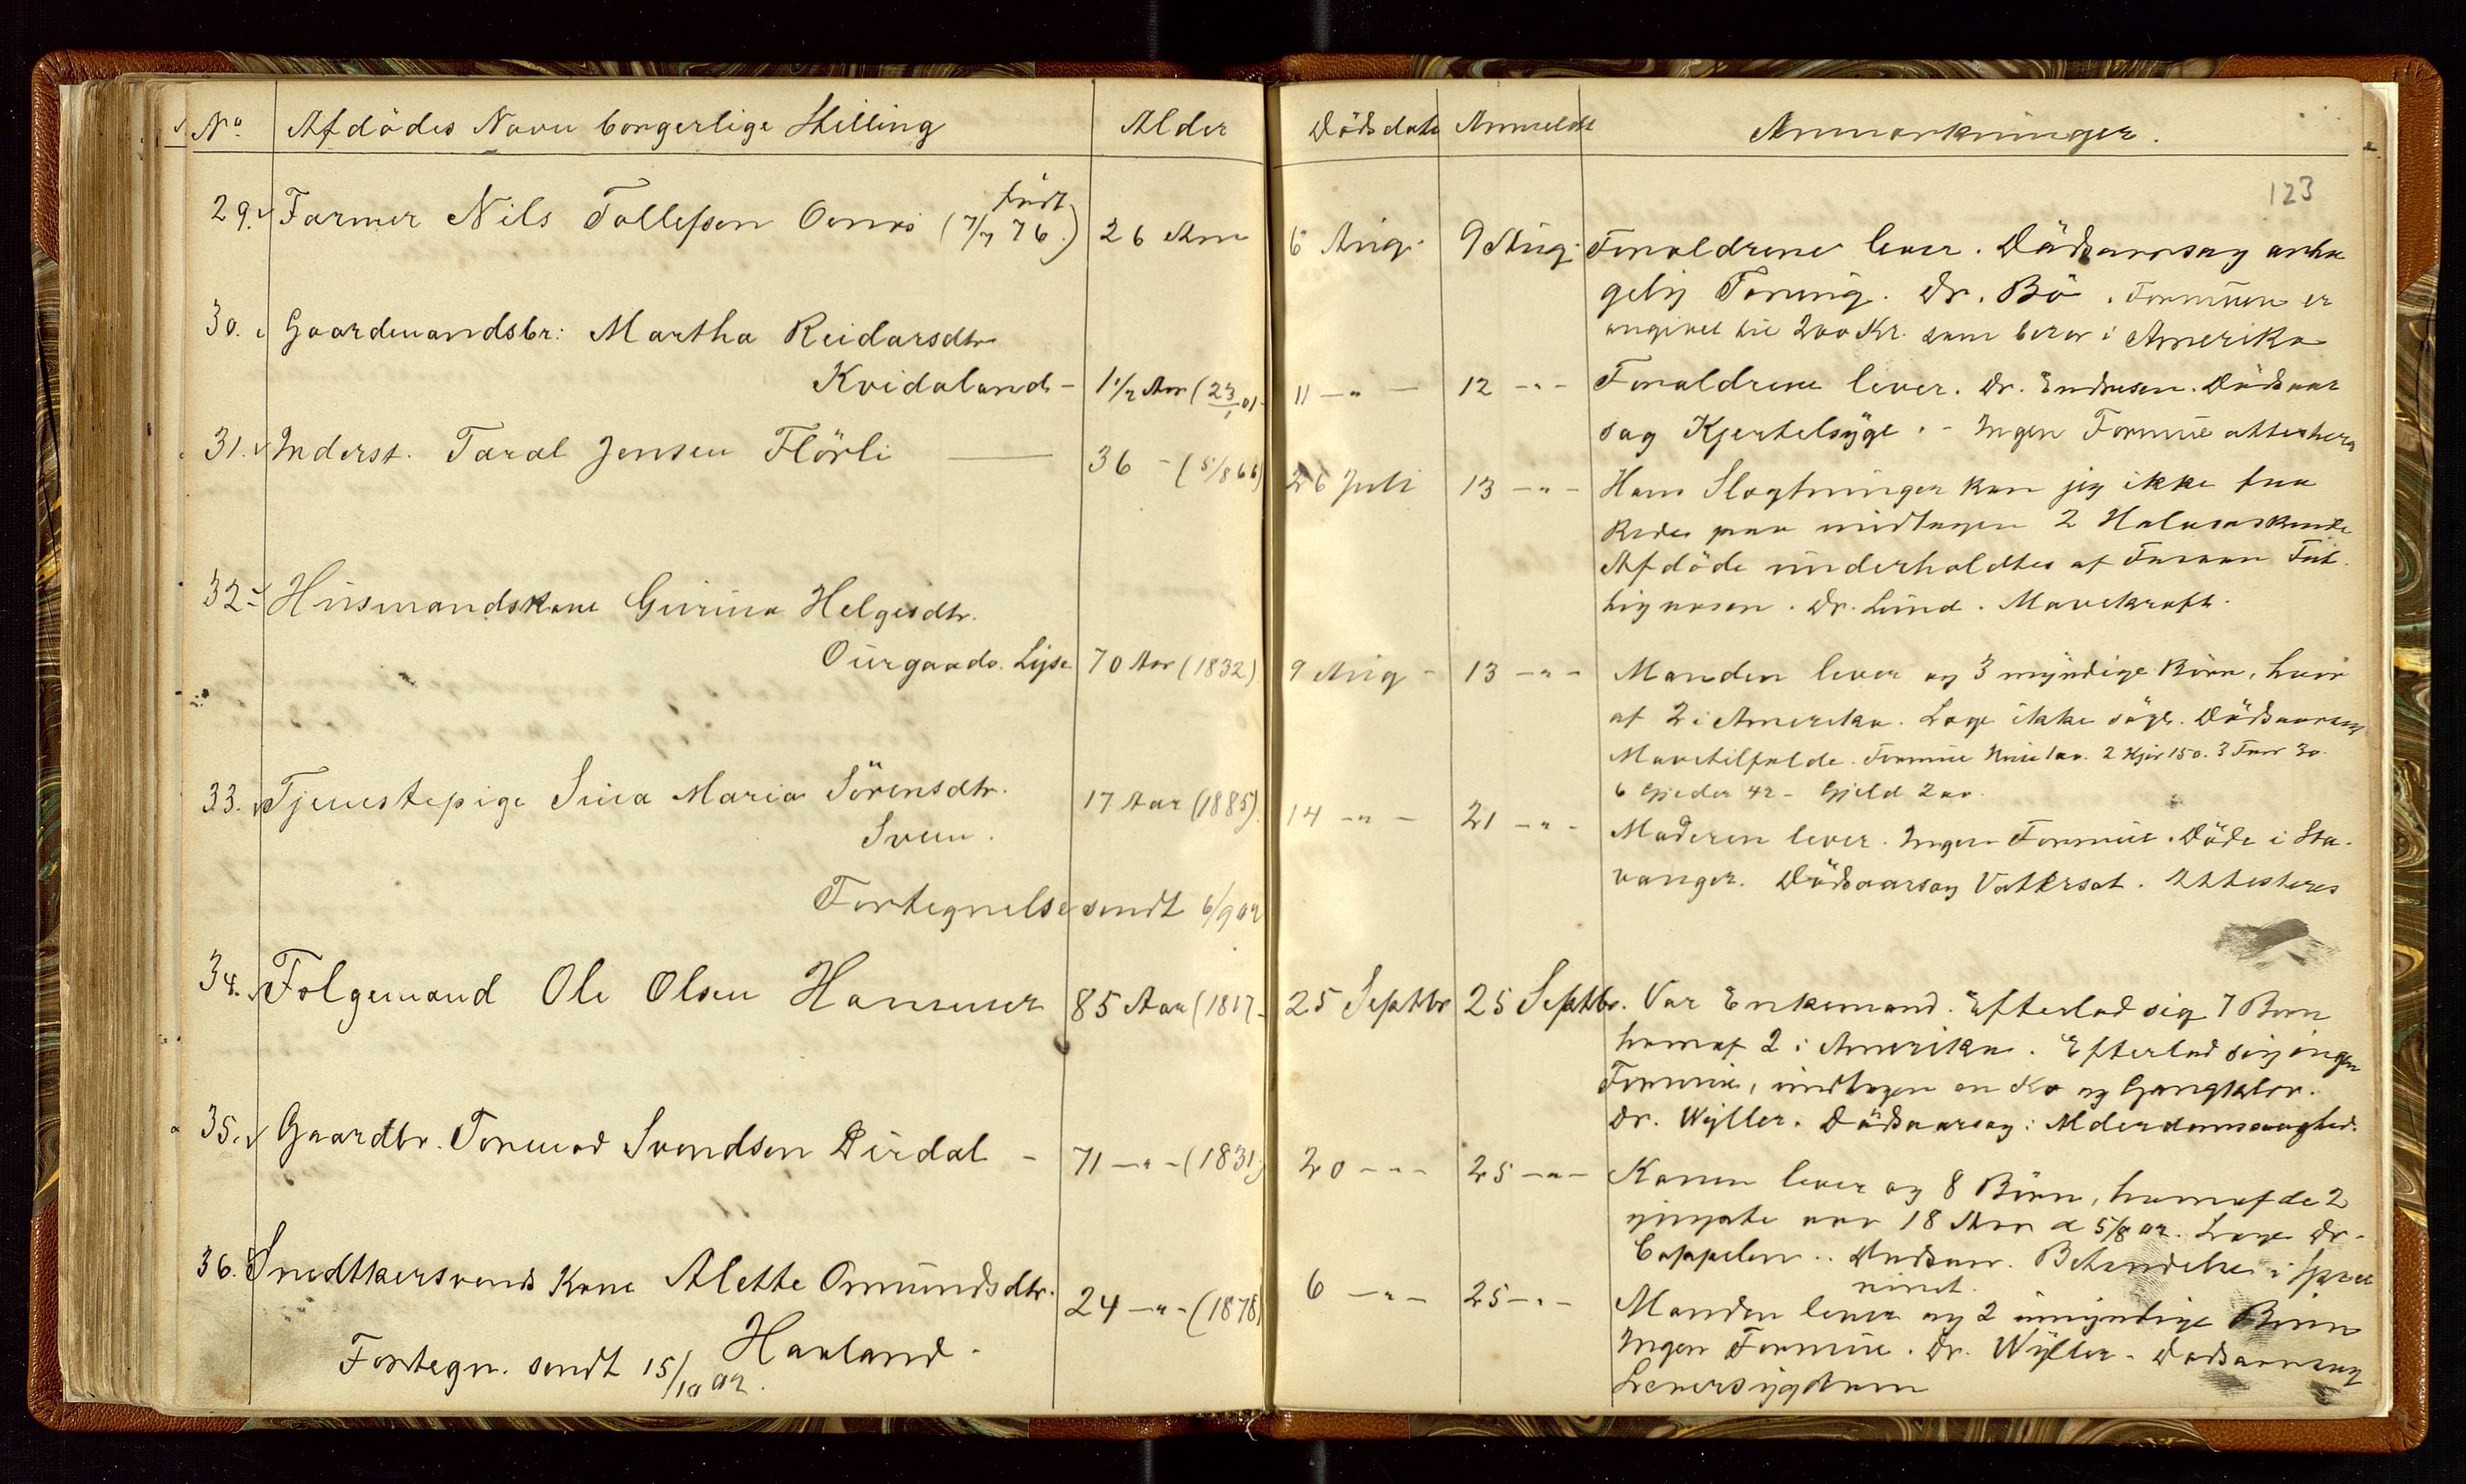 No. Afdødes Navn borgerlige Stilling Alder
29. Farmer Nils Tollefsen (født 7/7 76.) 26 Aar
30. Gaardmandsbr: Martha Reidarsdtr
Kvidaland - 1 1/2 Aar (23/1 01
31. Inderst. Taral Jensen Flörli 36 - (5/8 66)
32. Husmandskone Gurina Helgesdtr.
Lyse 70 Aar (1832)
33. Tjenestepige Sina Maria Sörensdtr. 17 Aar (1885)
Fortegnelse sendt 6/9 02
34. Folgemand Ole Olsen Hammer 85 Aar (1817
35. Gaardbr. Tormod Svendsen Dirdal - 71 -"- (1831)
36. Snedkersvends Kone Alette Omundsdtr. 24 -"- (1878)
Haaland -
Fortegn. sendt 15/10 02.
Dödsdato Anmeldt Anmærkninger.
123
6 Aug. 9 Aug. Foraldrene lever. Dödsaarsag anta
gelig Tæring. Dr. Bö. Formuen er
angivet til 200 Kr. som beror i Amerika
11 -"- 12 -"- Foraldrene lever. Dr. Endresen. Dödsaar
sag Kjertelsyge. - Ingen Formue attesteres
26 Juli 13 -"- Hans Slægtninger kan jeg ikke faa
Rede paa undtagen 2 Halvsøskende
Afdöde underholdtes af Fossan Fat-
tigvæsen. Dr. Lund. Mavekræft.
9 Aug - 13 -"- Manden lever og 3 myndige Börn, hvor
af 2 i Amerika. Læge ikke sögt. Dödsaarsag
Mavetilfælde. Formue Huse 100. 2 Kjör 150. 3 Faar 30.
6 Gjeder 42 - Gjeld 200.
14 -"- 21 -"- Moderen lever. Ingen Formue. Döde i Sta-
vanger. Dödsaarsag Vattersot. Attesteres
25 Septbr 25 Septbr. Var Enkemand. Efterlod sig 7 Börn
hvoraf 2 i Amerika. Efterlod sig ingen
Formue, undtagen en Ko og Gangklær.
Dr. Wyller. Dödsaarsag: Alderdomssvaghed.
20 -"- 25 -"- Konen lever og 8 Börn, hvoraf de 2
yngste var 18 Aar d 5/8 02. Læge Dr.
Cappelen. Behandelse i
6 -"- 25 -"- Manden lever og 2 umyndige Börn
Ingen Formue. Dr. Wyller - Dödsaarsag
Leversygdom